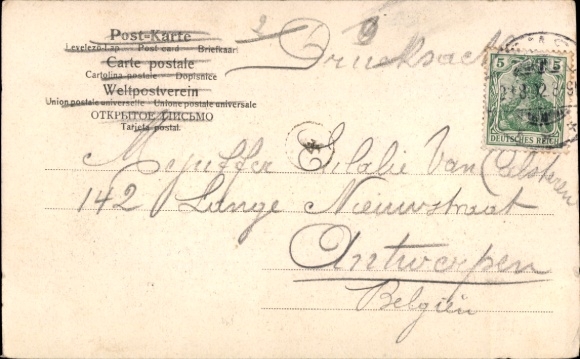 Post-Karte
Levelező-Lap Post card Briefkaart
Carte postale
Cartolina postale Dopisnice
Weltpostverein
Union postale universelle Unione postale universale
ОТКРЫТОЕ ПИСЬМО
Tarjeta postal
Drucksache
5 5
DEUTSCHES REICH
Mejuffer Eulalie Van
142 Lange Nieuwstraat
Antwerpen
Belgien